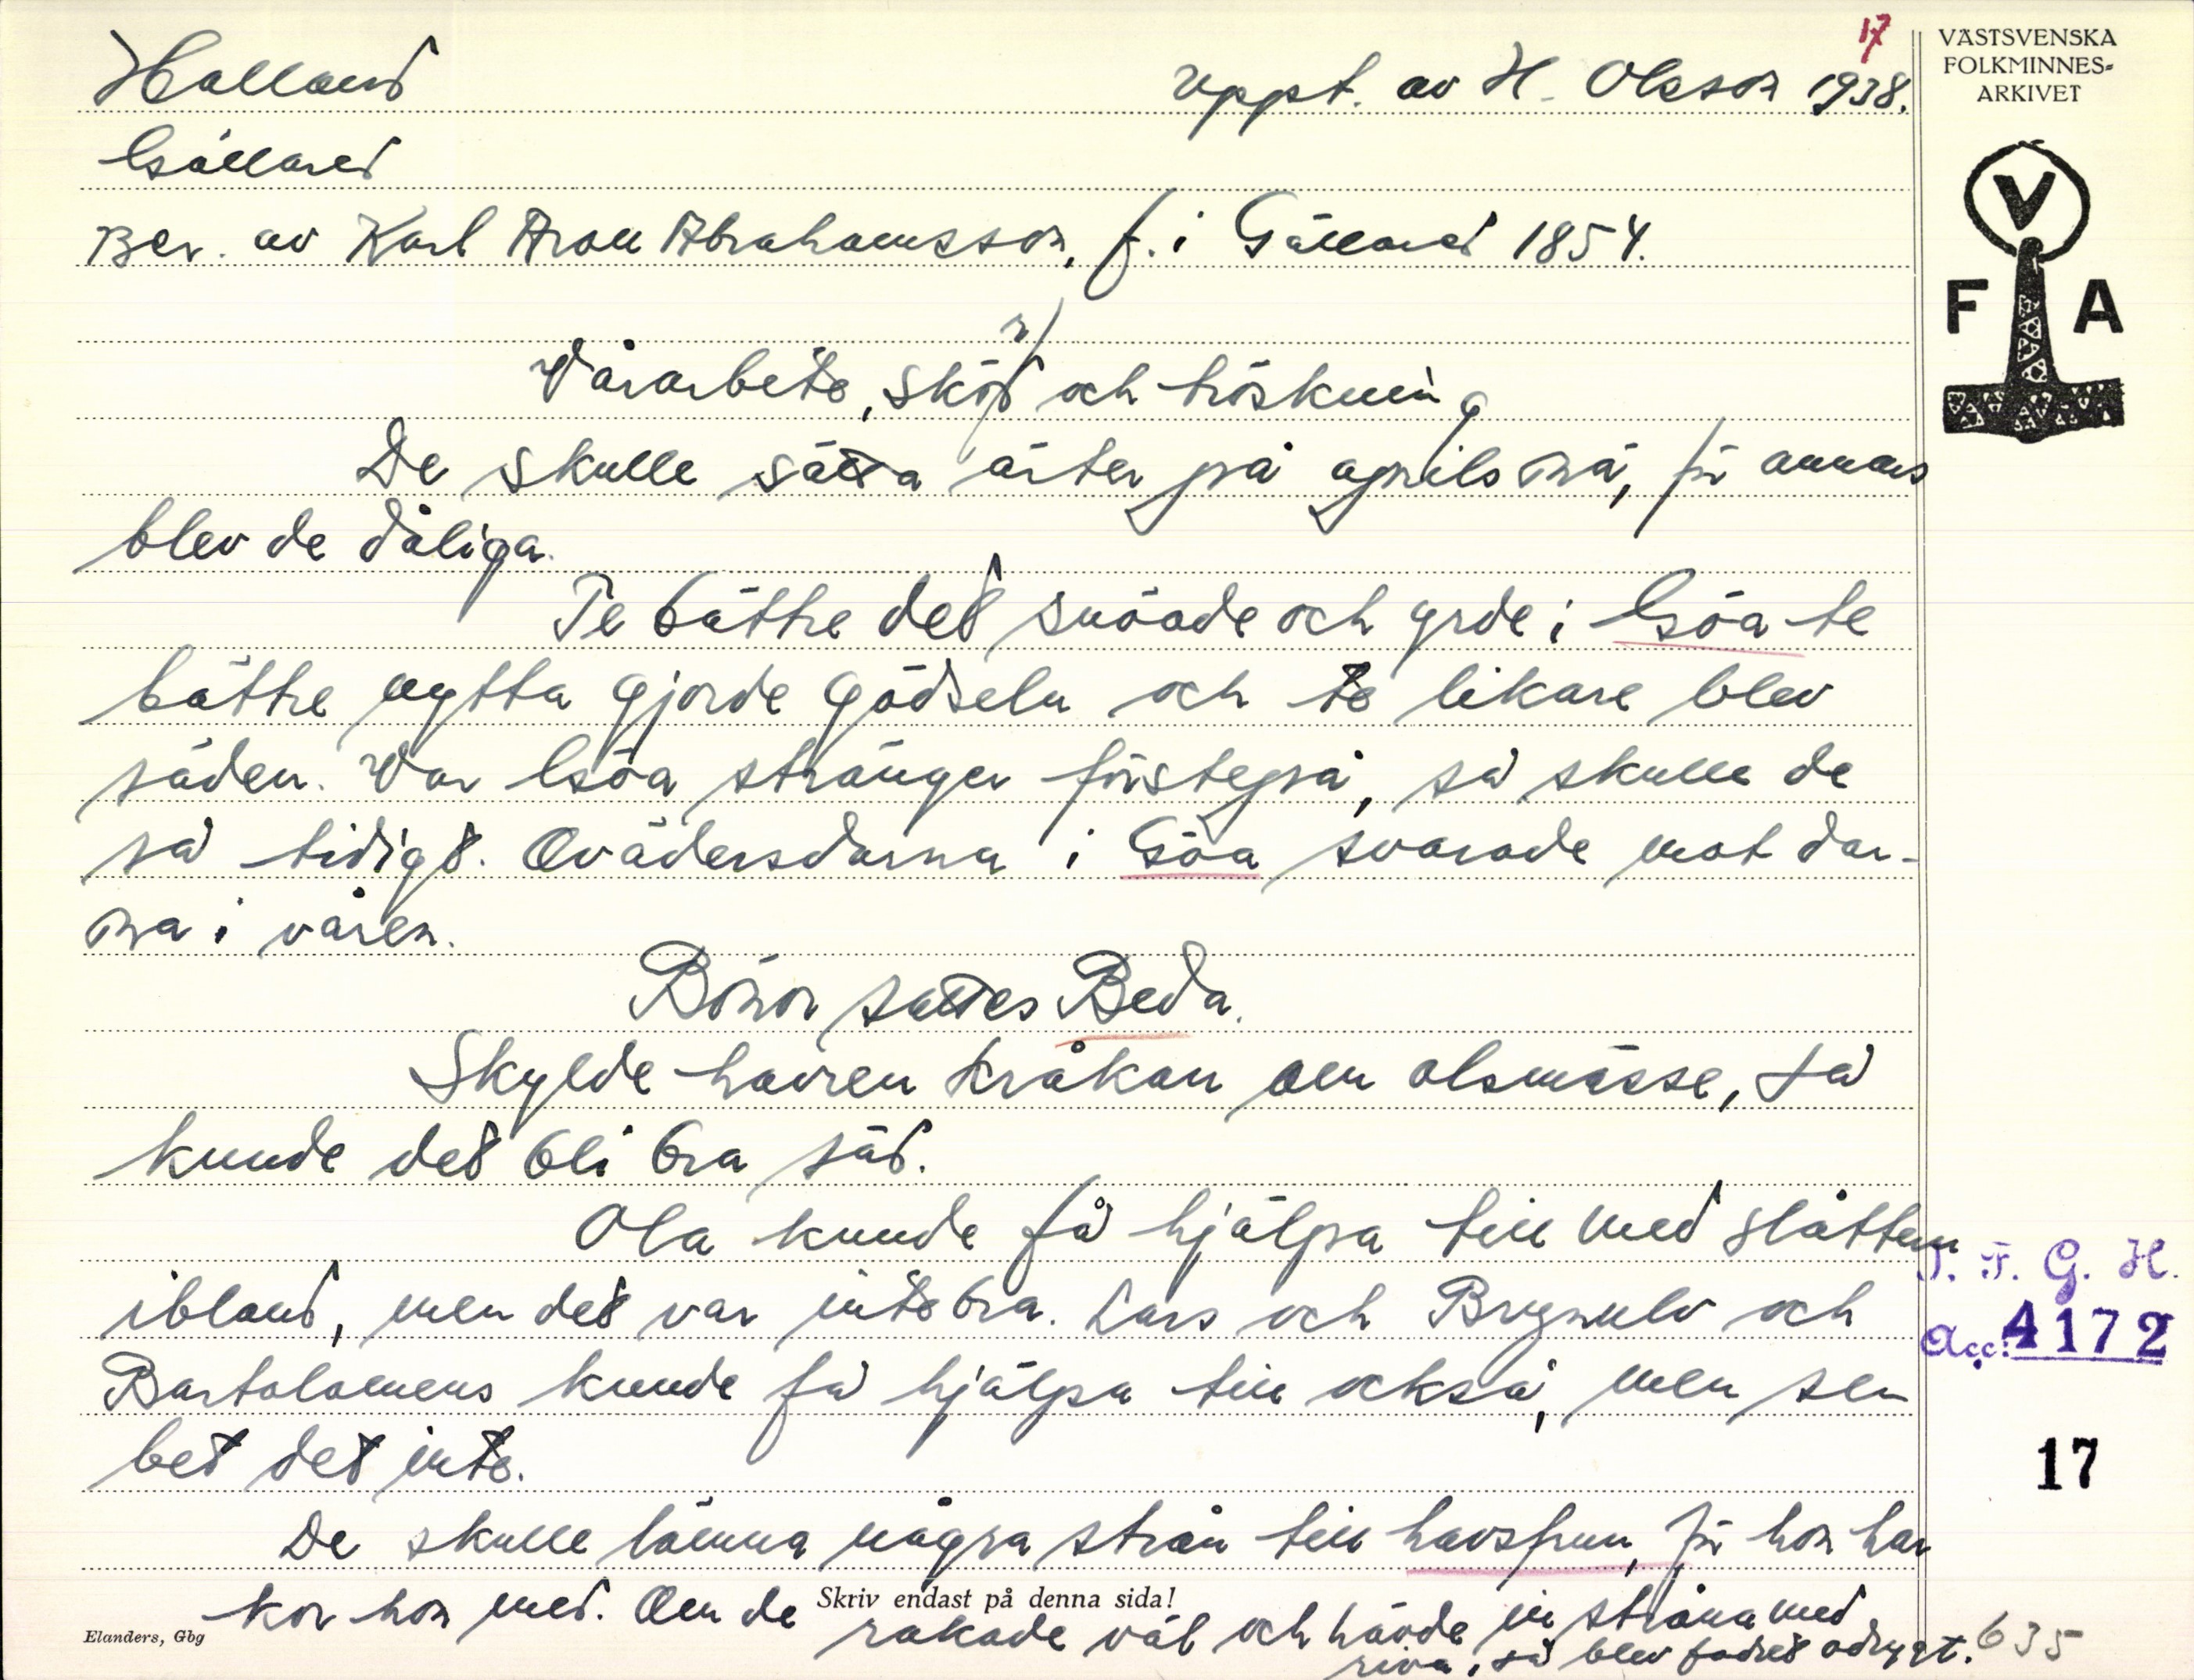 17
Halland
Uppt. av H. Olsson 1938.
VÄSTSVENSKA
FOLKMINNES-
ARKIVET
Gällared
V
F A
Ber. av Karl Aron Abrahamsson, f. i Gällared 1854.
Vårarbete, skörd och tröskning
De skulle sätta ärter på aprilsnä, för annars
blev de dåliga.
Te bättre det snöade och yrde i Göa te
bättre nytta gjorde gödseln och te likare blev
säden. Var Göa stränger förstepå, så skulle de
så tidigt. Ovädersdarna i Göa svarade mot dar-
na i våren.
Bönor sattes Beda.
Skylde havren kråkan om olsmässe, så
kunde det bli bra säd.
Ola kunde få hjälpa till med slåtten
ibland, men det var inte bra. Lars och Brynulv och
Bartolomeus kunde få hjälpa till också, men sen
bet det inte.
De skulle lämna några strån till havsfrun, för hon har
kor hon med. Om de rakade väl och hävde in stråna med
riva, så blev fodret odrygt.
Skriv endast på denna sida!
Elanders, Gbg
I. F. G. H.
Acc: 4172
17
635